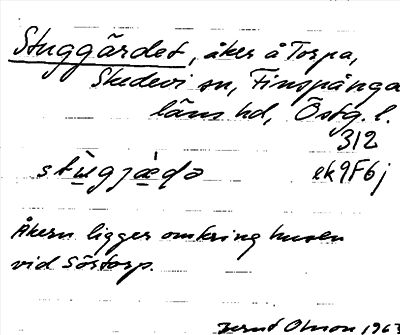 Stuggärdet, åker å Torpa,
Skedevi sn, Finspånga
läns hd, Östg. l.
312
stùgjæ̀ḍə ek9F6j
Åkern ligger omkring husen
vid Söstorp.
Bernt Olsson 1963